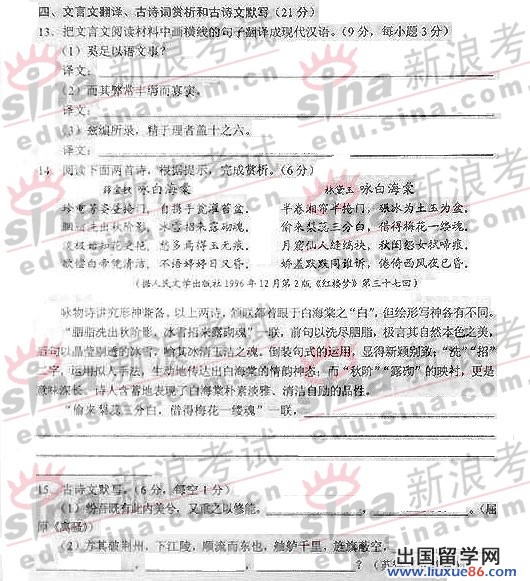 四、文言文翻译、古诗词赏析和古诗文默写(21分)
13、把文言文阅读材料中画横线的句子翻译成现代汉语。(9分，每小题3分)
(1)奚足以语文事？
译文：
(2)而其弊常丰缛而寡实。
译文：
(3)兹编所录，精于理者盖十之六。
译文：
14、阅读下面两首诗，根据提示，完成赏析。(6分)
薛宝钗 咏白海棠 林黛玉 咏白海棠
珍重芳姿昼掩门，自携手瓮灌苔盆。 半卷湘帘半掩门，碾冰为土玉为盆。
胭脂洗出秋阶影，冰雪招来露砌魂。 偷来梨蕊三分白，借得梅花一缕魂。
淡极始知花更艳，愁多焉得玉无痕。 月窟仙人缝缟袂，秋闺怨女拭啼痕。
欲偿白帝凭清洁，不语婷婷日又昏。 娇羞默默同谁诉，倦倚西风夜已昏。
(据人民文学出版社1996年12月第2版《红楼梦》第三十七回)
咏物诗讲究形神兼备。以上两诗，颔联都着眼于白海棠之“白”，但绘形写神各有不同。
“胭脂洗出秋阶影，冰雪招来露砌魂”一联，前句以洗尽胭脂，极言其自然本色之美，
后句以晶莹剔透的冰雪，喻其冰清玉洁之魂。倒装句式的运用，显得新颖别致；“洗”“招”
二字，运用拟人手法，生动地传达出白海棠的情韵神态；而“秋阶”“露砌”的映衬，更是
意味深长。诗人含蓄地表现了白海棠朴素淡雅、清洁自励的品性。
“偷来梨蕊三分白，借得梅花一缕魂”一联，
15、古诗文默写。(6分，每空1分)
(1)纷吾既有此内美兮，又重之以修能。 ， 。(屈
原《离骚》)
(2)方其破荆州，下江陵，顺流而东也，舳舻千里，旌旗蔽空，
sina 新浪考试
edu.sina.com.cn
出国留学网
www.liuxue86.com